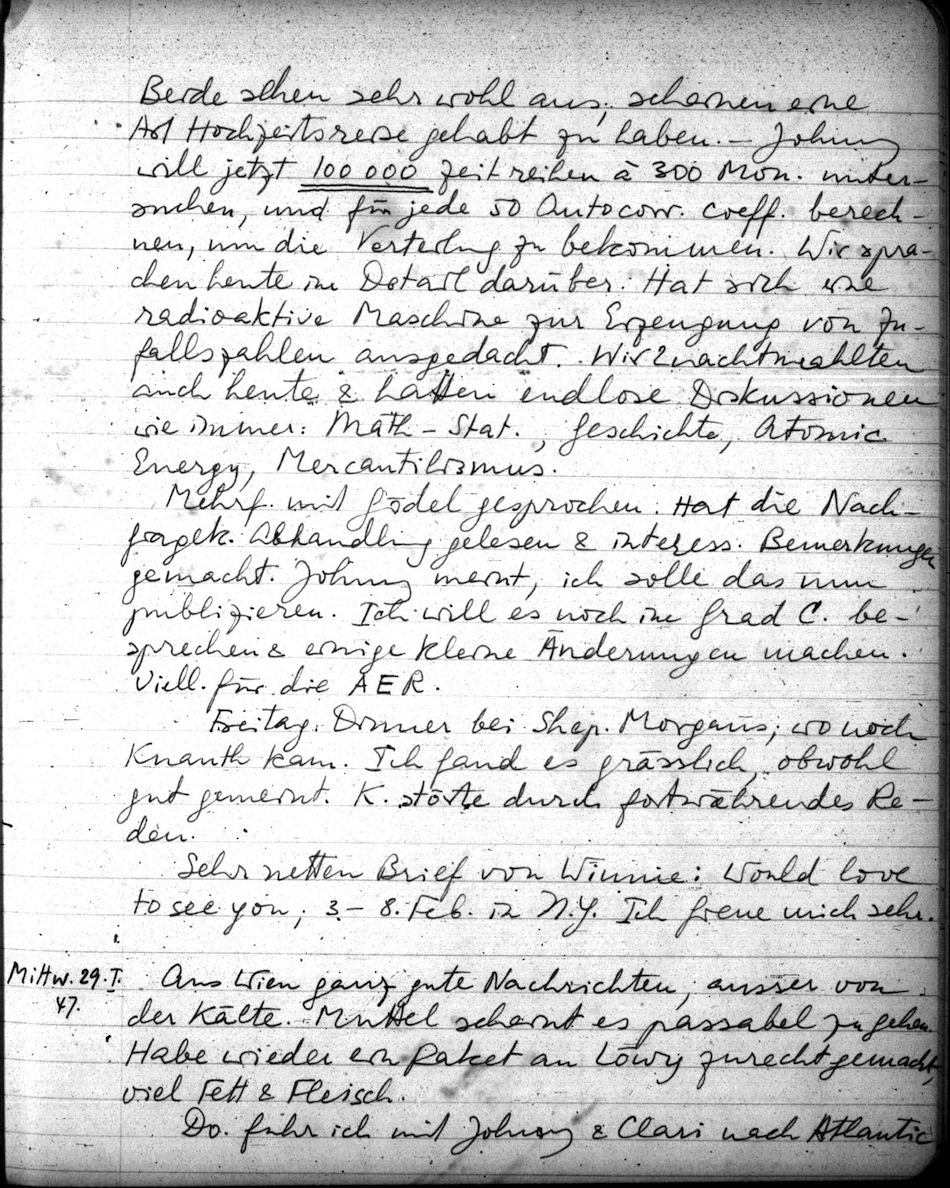 Beide sehen sehr wohl aus, scheinen eine
Art Hochzeitsreise gehabt zu haben. – Johnny
will jetzt 100 000 Zeitreihen à 300 Mon. unter-
suchen, und für jede 50 Autocorr. Coeff. berech-
nen, um die Verteilung zu bekommen. Wir spra-
chen heute im Detail darüber. Hat sich eine
radioaktive Maschine zur Erzeugung von Zu-
fallszahlen ausgedacht. Wir nachtmahlten
auch heute & hatten endlose Diskussionen
wie immer: Math-Stat., Geschichte, Atomic
Energy, Mercantilismus.
Mehrf. mit Gödel gesprochen. Hat die Nach-
fragek. Abhandlung gelesen & interess. Bemerkungen
gemacht. Johnny meint, ich solle das nun
publizieren. Ich will es noch im Grad C. be-
sprechen & einige kleine Änderungen machen.
Viell. für die AER.
Freitag. Dinner bei Shep. Morgans, wo noch
Knauth kam. Ich fand es grässlich, obwohl
gut gemeint. K. störte durch fortwährendes Re-
den.
Sehr netten Brief von Winnie: Would love
to see you, 3.–8. Feb. in N.Y. Ich freue mich sehr.
Mittw. 29.I. Aus Wien ganz gute Nachrichten, ausser von
47. der Kälte. Muttel scheint es passabel zu gehen.
Habe wieder ein Paket an Löwy zurechtgemacht,
viel Fett & Fleisch.
Do. fuhr ich mit Johnny & Clari nach Atlantic